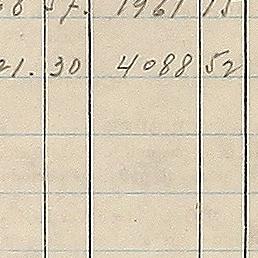 57. 1961 15
21. 30 4088 52